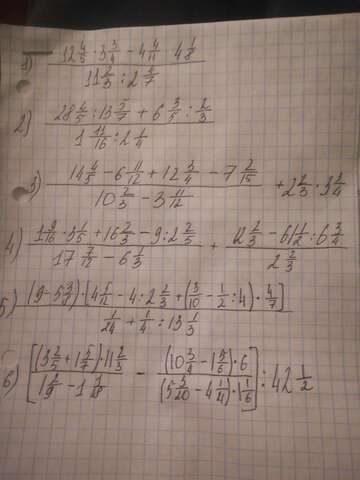 1) (12 4/5 · 3 3/4 − 4 4/11 · 4 1/8) / (11 2/3 : 2 4/7)
2) (28 4/5 : 13 5/7 + 6 3/5 : 2/3) / (1 11/16 : 2 1/4)
3) (14 4/5 − 6 11/12 + 12 3/4 − 7 2/15) / (10 2/3 − 3 11/12) + 2 2/3 · 3 3/4
4) (1 9/16 · 3 1/5 + 16 2/3 − 9 : 2 2/5) / (17 7/12 − 6 1/3) + (12 2/3 − 6 1/2 : 6 3/4) / (2 2/3)
5) (9 − 5 3/8) · [4 1/11 − 4 : 2 2/3 + (3/10 − 1/2 : 4) · 4/7] / (1/24 + 1/4 : 13 1/3)
6) [(3 2/5 + 1 5/7) · 11 2/3 / (1 2/9 − 1 3/28) − (10 3/4 − 1 5/6) · 6 / ((5 3/20 − 4 1/4) · 1 1/6)] : 42 1/2